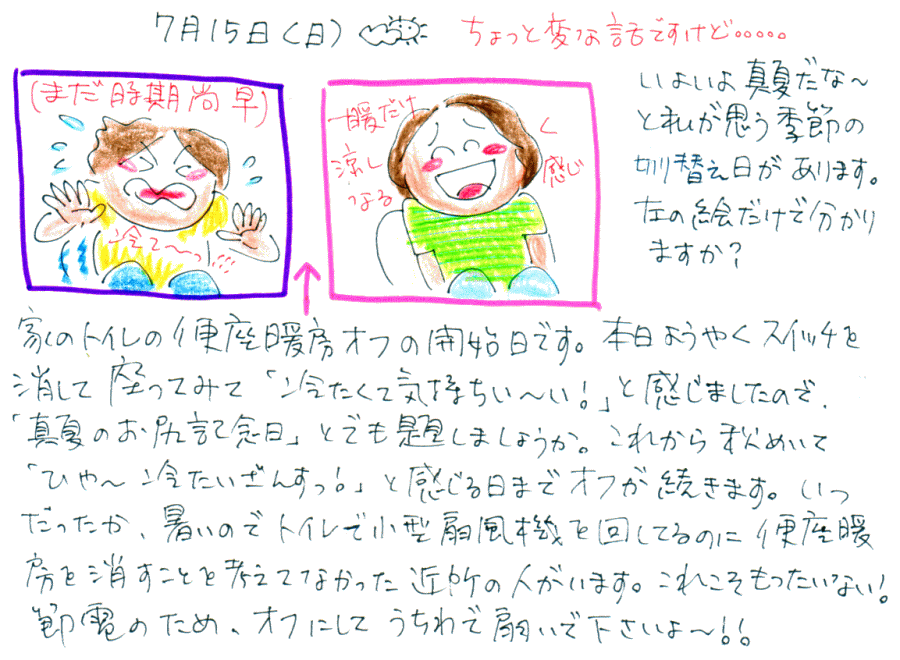 7月15日(日)
ちょっと変な話ですけど.....
(まだ時期尚早)
冷て〜っ!!!
一瞬だけ
涼しく
なる感じ
いよいよ真夏だな〜
とわれが思う季節の
切り替え日があります。
左の絵だけで分かり
ますか?
家のトイレの便座暖房オフの開始日です。本日ようやくスイッチを
消して座ってみて「冷たくて気持ちい〜い!」と感じましたので、
「真夏のお尻記念日」とでも題しましょうか。これから秋めいて
「ひゃ〜冷たいざんすっ!」と感じる日までオフが続きます。いつ
だったか、暑いのでトイレで小型扇風機を回してるのに便座暖
房を消すことを考えてなかった近所の人がいます。これこそもったいない!
節電のため、オフにしてうちわで扇いで下さいよ〜!!